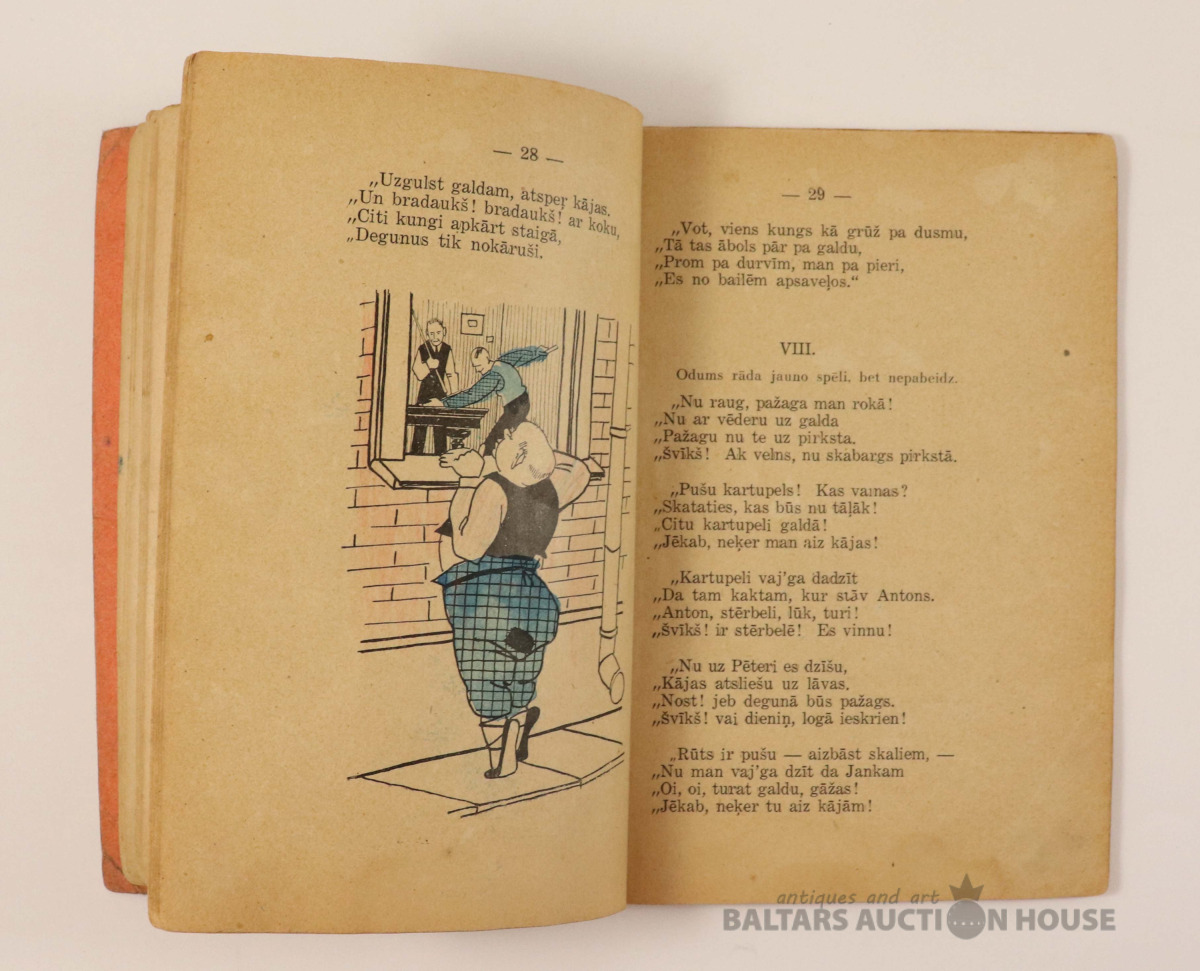 — 28 —
„Uzgulst galdam, atspeŗ kājas.
„Un bradaukš! bradaukš! ar koku,
„Citi kungi apkārt staigā,
„Degunus tik nokāruši.
— 29 —
„Vot, viens kungs kā grūž pa dusmu,
„Tā tas ābols pār pa galdu,
„Prom pa durvīm, man pa pieri,
„Es no bailēm apsaveļos.“
VIII.
Odums rāda jauno spēli, bet nepabeidz.
„Nu raug, pažaga man rokā!
„Nu ar vēderu uz galda
„Pažagu nu te uz pirksta.
„Švīkš! Ak velns, nu skabargs pirkstā.
„Pušu kartupels! Kas vainas?
„Skataties, kas būs nu tāļāk!
„Citu kartupeli galdā!
„Jēkab, neķer man aiz kājas!
„Kartupeli vaj'ga dadzīt
„Da tam kaktam, kur stāv Antons.
„Anton, stērbeli, lūk, turi!
„Švīkš! ir stērbelē! Es vinnu!
„Nu uz Pēteri es dzīšu,
„Kājas atsliešu uz lāvas.
„Nost! jeb degunā būs pažags.
„Švīkš! vai dieniņ, logā ieskrien!
„Rūts ir pušu — aizbāst skaliem, —
„Nu man vaj'ga dzīt da Jankam
„Oi, oi, turat galdu, gāžas!
„Jēkab, neķer tu aiz kājām!
antiques and art
BALTARS AUCTION HOUSE